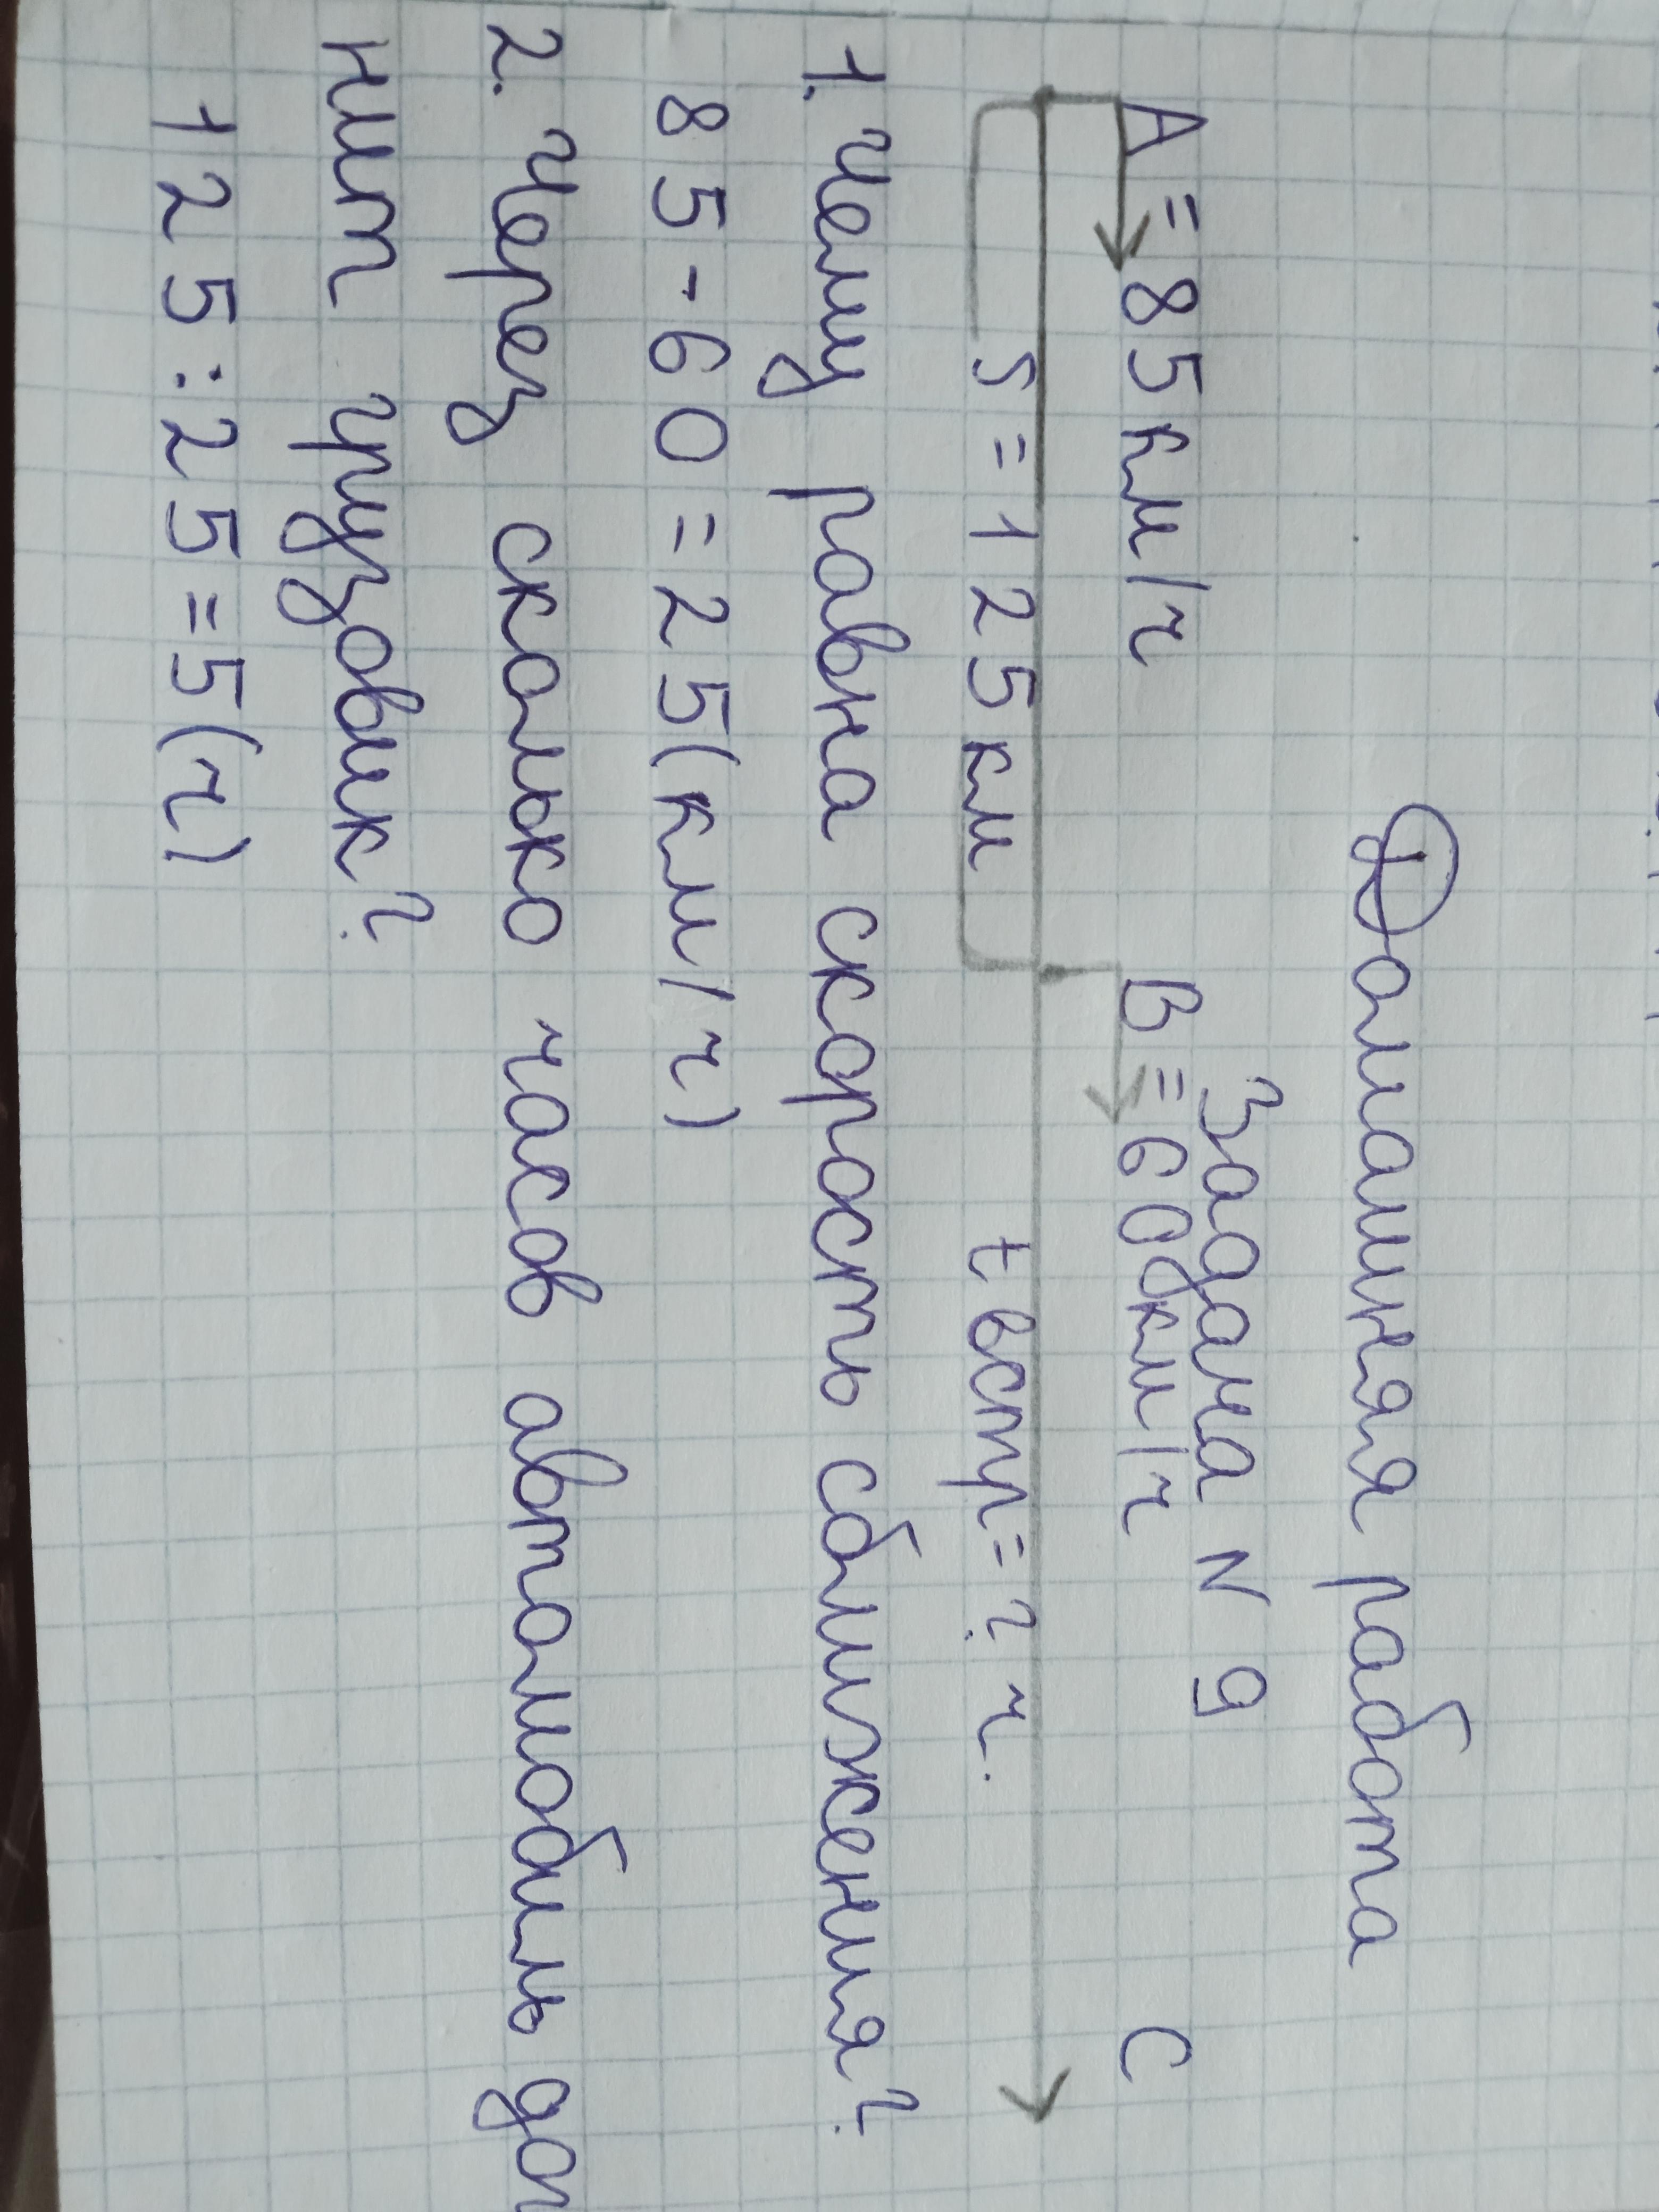 Домашняя работа
Задача N 9
A = 85 км/ч B = 60 км/ч C
S = 125 км t встр = ? ч.
1. Чему равна скорость сближения?
85 - 60 = 25 (км/ч)
2. Через сколько часов автомобиль дог
нит грузовик?
125 : 25 = 5 (ч)